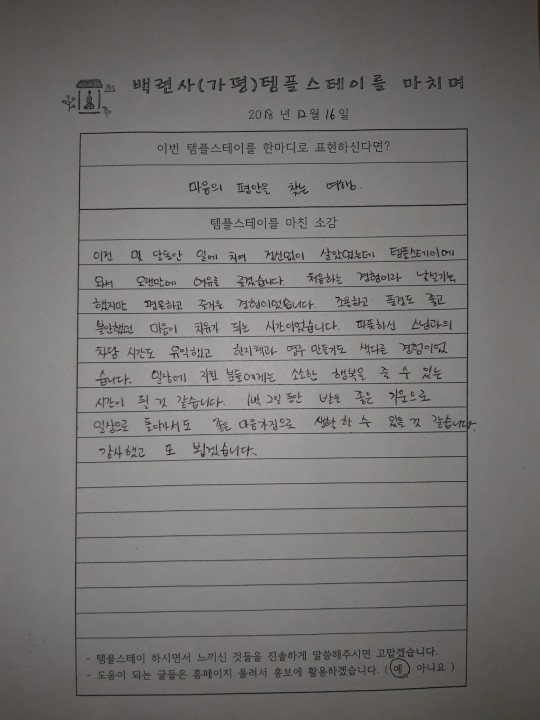 백련사(가평)템플스테이를 마치며
2018 년 12 월 16 일
이번 템플스테이를 한마디로 표현하신다면?
마음의 평안을 찾는 여행.
템플스테이를 마친 소감
이전 몇 달동안 일에 치여 정신없이 살았었는데 템플스테이에
와서 오랜만에 여유를 즐겼습니다. 처음하는 경험이라 낯설기도
했지만 평온하고 즐거운 경험이었습니다. 조용하고 풍경도 좋고
불안했던 마음이 치유가 되는 시간이었습니다. 따뜻하신 스님과의
차담 시간도 유익했고 한지책과 염주 만들기도 색다른 경험이었
습니다. 일상에 지친 분들에게는 소소한 행복을 줄 수 있는
시간이 될 것 같습니다. 1박 2일 동안 받은 좋은 기운으로
일상으로 돌아가서도 좋은 마음가짐으로 생활 할 수 있을 것 같습니다.
감사했고 또 뵙겠습니다.
- 템플스테이 하시면서 느끼신 것들을 진솔하게 말씀해주시면 고맙겠습니다.
- 도움이 되는 글들은 홈페이지 올려서 홍보에 활용하겠습니다. ( 예 아니요 )